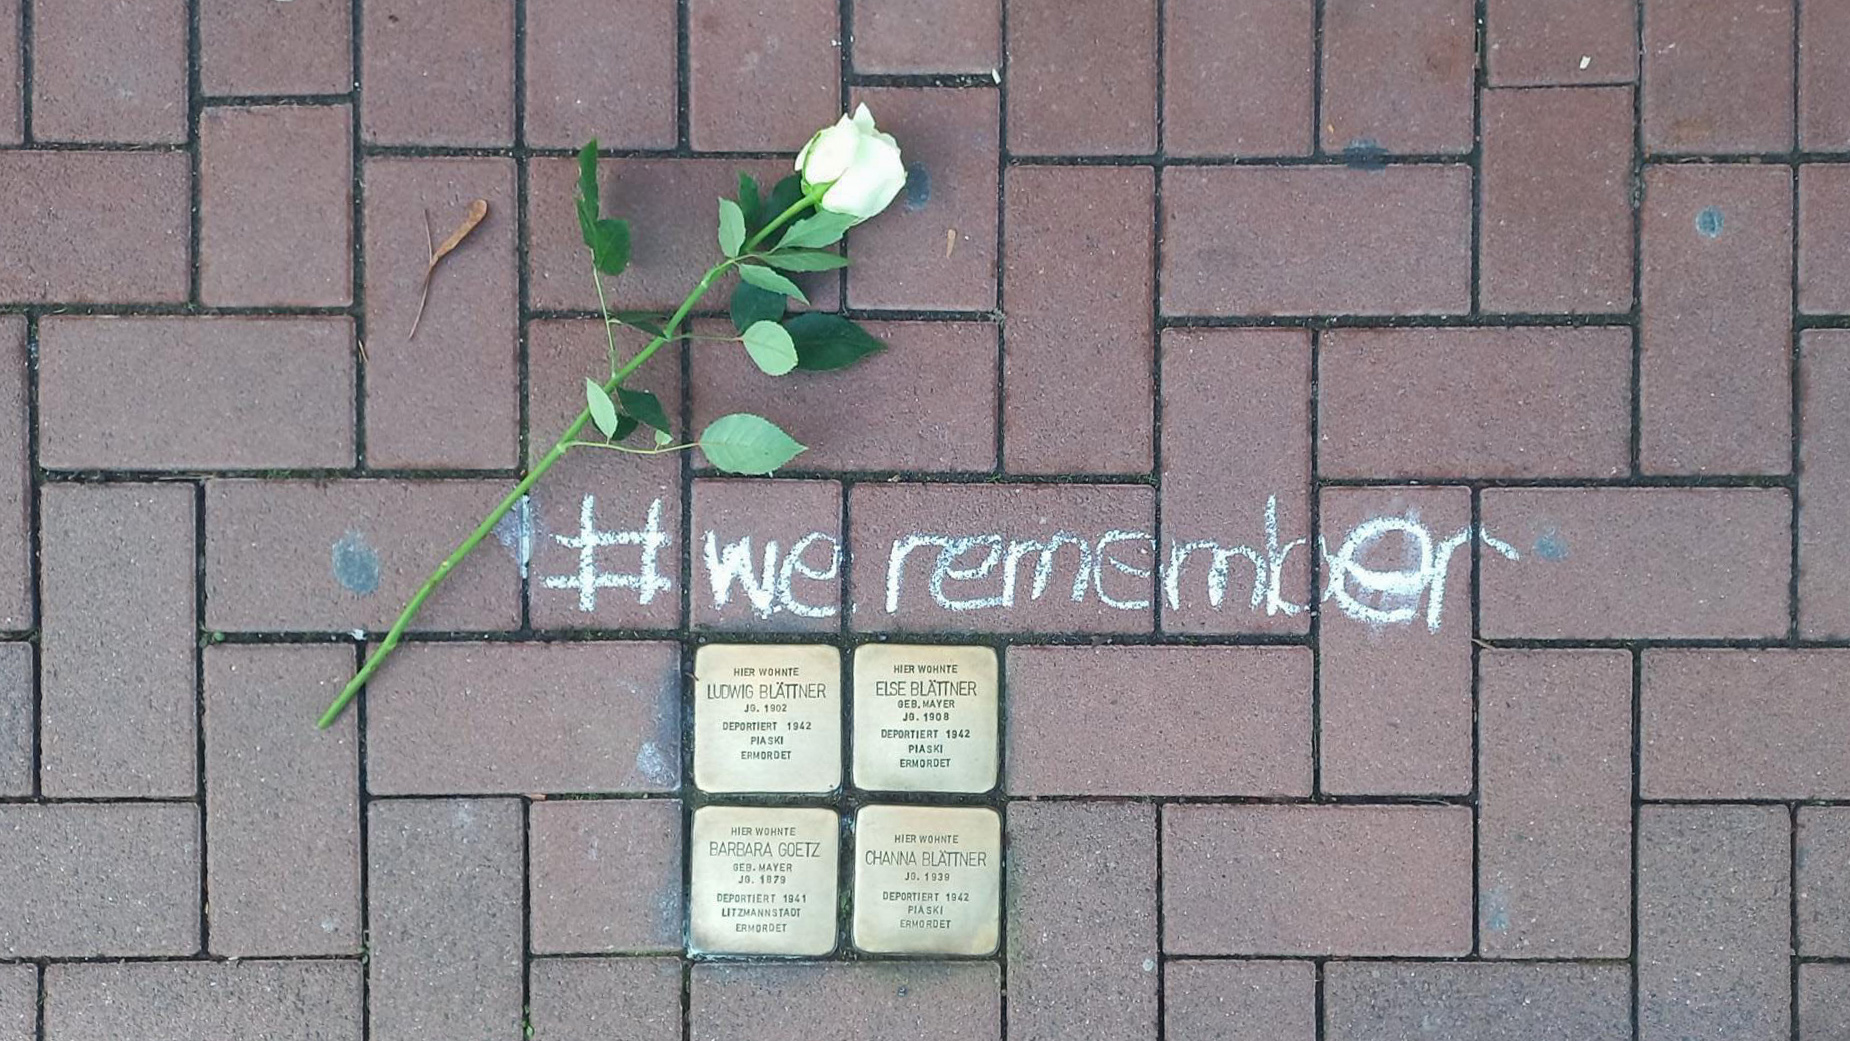 #we remember
HIER WOHNTE
LUDWIG BLÄTTNER
JG. 1902
DEPORTIERT 1942
PIASKI
ERMORDET
HIER WOHNTE
ELSE BLÄTTNER
GEB. MAYER
JG. 1908
DEPORTIERT 1942
PIASKI
ERMORDET
HIER WOHNTE
BARBARA GOETZ
GEB. MAYER
JG. 1879
DEPORTIERT 1941
LITZMANNSTADT
ERMORDET
HIER WOHNTE
CHANNA BLÄTTNER
JG. 1939
DEPORTIERT 1942
PIASKI
ERMORDET